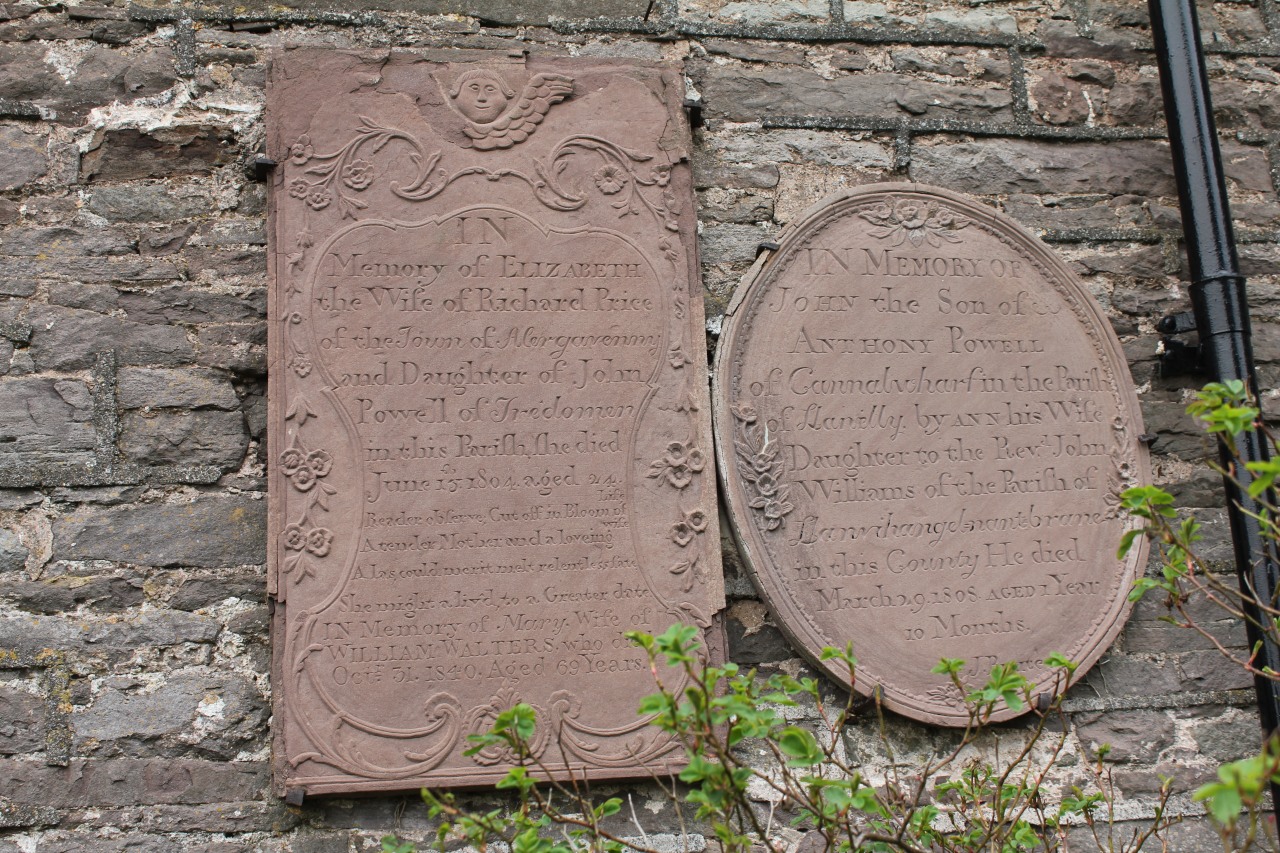 IN
Memory of ELIZABETH
the Wife of Richard Price
of the Town of Abergavenny
and Daughter of John
Powell of Tredomen
in this Parish, she died
June 15th 1804 aged 24.
Reader observe, Cut off in Bloom of Life
A tender Mother and a loveing Wife
Alas could merit melt relentless fate
She might a liv'd, to a Greater date
IN Memory of Mary Wife of
WILLIAM WALTERS, who died
Octr. 31. 1840. Aged 69 Years.
IN MEMORY OF
JOHN the Son of
ANTHONY POWELL
of Cannalwharf in the Parish
of Llanelly. by ANN his Wife
Daughter to the Revd. John
Williams of the Parish of
Llanvihangelnantbrane
in this County He died
March 29. 1808. AGED 1 Year
10 Months.